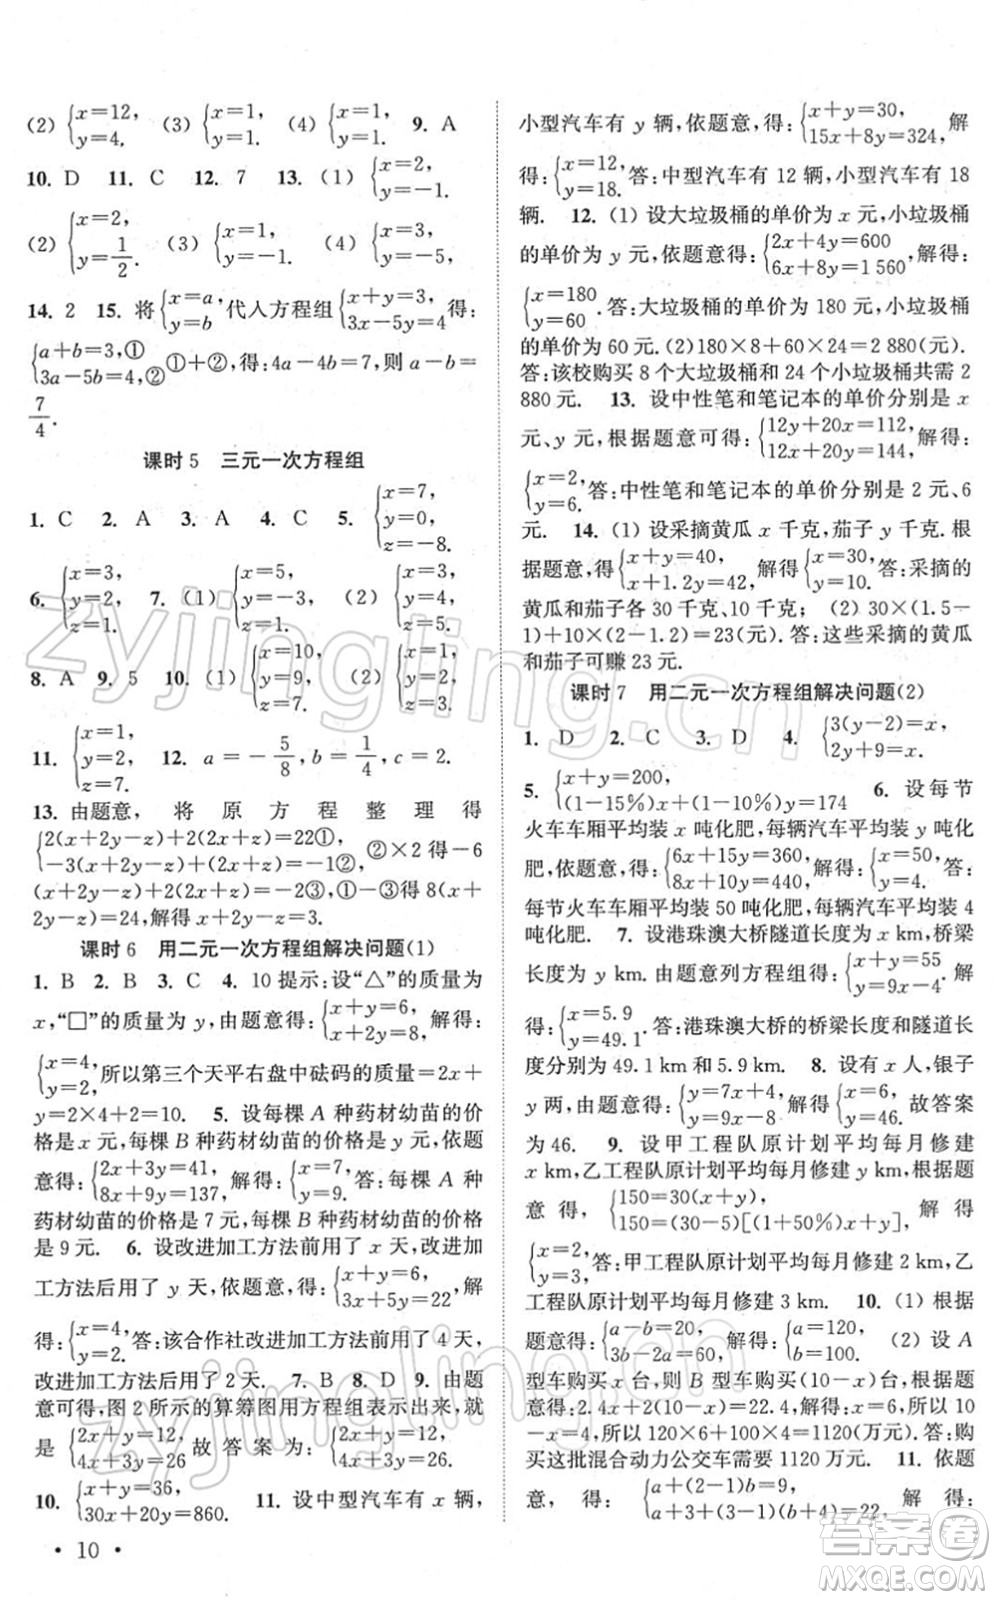 (2) {x=12, y=4. (3) {x=1, y=1. (4) {x=1, y=1. 9. A
10. D 11. C 12. 7 13. (1) {x=2, y=-1.
(2) {x=2, y=1/2. (3) {x=1, y=-1. (4) {x=3, y=-5,
14. 2 15. 将{x=a, y=b 代人方程组{x+y=3, 3x-5y=4 得:
{a+b=3,① 3a-5b=4,② ①+②,得:4a-4b=7,则 a-b=
7/4.
课时5 三元一次方程组
1. C 2. A 3. A 4. C 5. {x=7, y=0, z=-8.
6. {x=3, y=2, z=1. 7. (1) {x=5, y=-3, z=1. (2) {x=3, y=4, z=5.
8. A 9. 5 10. (1) {x=10, y=9, z=7. (2) {x=4, y=2, z=3.
11. {x=1, y=2, z=7. 12. a=-5/8, b=1/4, c=2.
13. 由题意, 将原方程整理得
{2(x+2y-z)+2(2x+z)=22① -3(x+2y-z)+(2x+z)=-1②, ②×2得-6
(x+2y-z)+2(2x+z)=-2③,①-③得8(x+
2y-z)=24,解得x+2y-z=3.
课时6 用二元一次方程组解决问题(1)
1. B 2. B 3. C 4. 10 提示:设“△”的质量为
x,“□”的质量为 y,由题意得:{x+y=6, x+2y=8, 解得:
{x=4, y=2, 所以第三个天平右盘中砝码的质量=2x+
y=2×4+2=10. 5. 设每棵 A 种药材幼苗的价
格是 x 元,每棵 B 种药材幼苗的价格是 y 元,依题
意得:{2x+3y=41, 8x+9y=137, 解得:{x=7, y=9. 答:每棵 A 种
药材幼苗的价格是 7 元,每棵 B 种药材幼苗的价格
是 9 元. 6. 设改进加工方法前用了 x 天,改进加
工方法后用了 y 天,依题意,得:{x+y=6, 3x+5y=22, 解
得:{x=4, y=2. 答:该合作社改进加工方法前用了 4 天,
改进加工方法后用了 2 天. 7. B 8. D 9. 由题
意可得,图 2 所示的算筹图用方程组表示出来,就
是{2x+y=12, 4x+3y=26 故答案为:{2x+y=12, 4x+3y=26.
10. {x+y=36, 30x+20y=860. 11. 设中型汽车有 x 辆,
• 10 •
小型汽车有 y 辆,依题意,得:{x+y=30, 15x+8y=324, 解
得:{x=12, y=18. 答:中型汽车有 12 辆,小型汽车有 18
辆. 12. (1) 设大垃圾桶的单价为 x 元,小垃圾桶
的单价为 y 元,依题意得:{2x+4y=600 6x+8y=1 560, 解得:
{x=180 y=60 .答:大垃圾桶的单价为 180 元,小垃圾桶
的单价为 60 元.(2)180×8+60×24=2 880(元).
答:该校购买 8 个大垃圾桶和 24 个小垃圾桶共需 2
880 元. 13. 设中性笔和笔记本的单价分别是 x
元、y 元,根据题意可得:{12y+20x=112 12x+20y=144, 解得:
{x=2, y=6. 答:中性笔和笔记本的单价分别是 2 元、6
元. 14. (1) 设采摘黄瓜 x 千克,茄子 y 千克.根
据题意,得{x+y=40, x+1.2y=42, 解得{x=30, y=10. 答:采摘的
黄瓜和茄子各 30 千克、10 千克; (2) 30×(1.5-
1)+10×(2-1.2)=23(元).答:这些采摘的黄瓜
和茄子可赚 23 元.
课时7 用二元一次方程组解决问题(2)
1. D 2. C 3. D 4. {3(y-2)=x, 2y+9=x.
5. {x+y=200, (1-15%)x+(1-10%)y=174 6. 设每节
火车车厢平均装 x 吨化肥,每辆汽车平均装 y 吨化
肥,依题意,得:{6x+15y=360, 8x+10y=440, 解得:{x=50, y=4. 答:
每节火车车厢平均装 50 吨化肥,每辆汽车平均装 4
吨化肥. 7. 设港珠澳大桥隧道长度为 x km,桥梁
长度为 y km.由题意列方程组得:{x+y=55 y=9x-4. 解
得:{x=5.9 y=49.1. 答:港珠澳大桥的桥梁长度和隧道长
度分别为 49.1 km 和 5.9 km. 8. 设有 x 人,银子
y 两,由题意得:{y=7x+4, y=9x-8. 解得{x=6, y=46. 故答案
为 46. 9. 设甲工程队原计划平均每月修建
x km,乙工程队原计划平均每月修建 y km,根据题
意得,{150=30(x+y), 150=(30-5)[(1+50%)x+y], 解得
{x=2, y=3, 答:甲工程队原计划平均每月修建 2 km,乙
工程队原计划平均每月修建 3 km. 10. (1) 根据
题意得:{a-b=20, 3b-2a=60, 解得:{a=120, b=100. (2) 设 A
型车购买 x 台,则 B 型车购买(10-x)台,根据题意
得:2.4x+2(10-x)=22.4,解得:x=6,所以 10
-x=4,所以 120×6+100×4=1120(万元).答:购
买这批混合动力公交车需要 1120 万元. 11. 依题
意,得:{a+(2-1)b=9, a+(2-1)b+(3-1)(b+4)=22, 解得:
zyjingling.cn
zyjingling.cn
答案圈
MXQE.COM